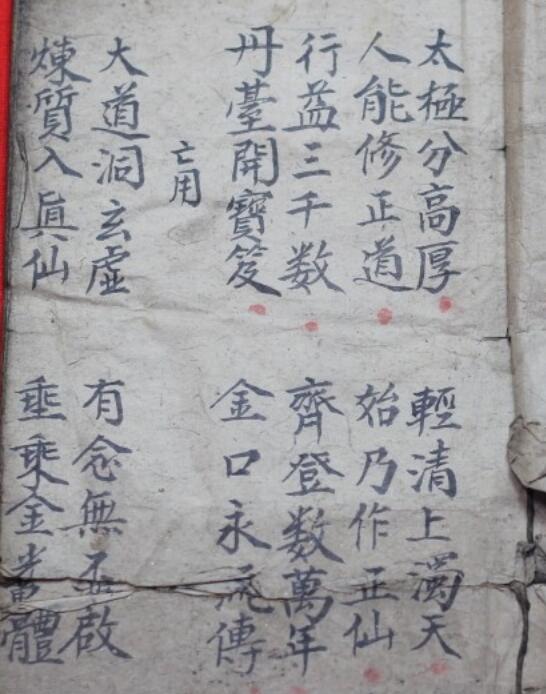 太極分高厚 輕清上濁天
人能修正道 始乃作正仙
行益三千数 齊登数萬年
丹臺開寶笈 金口永流傳
亡用
大道洞玄虛 有念無丕啟
煉質入眞仙 垂乘金體